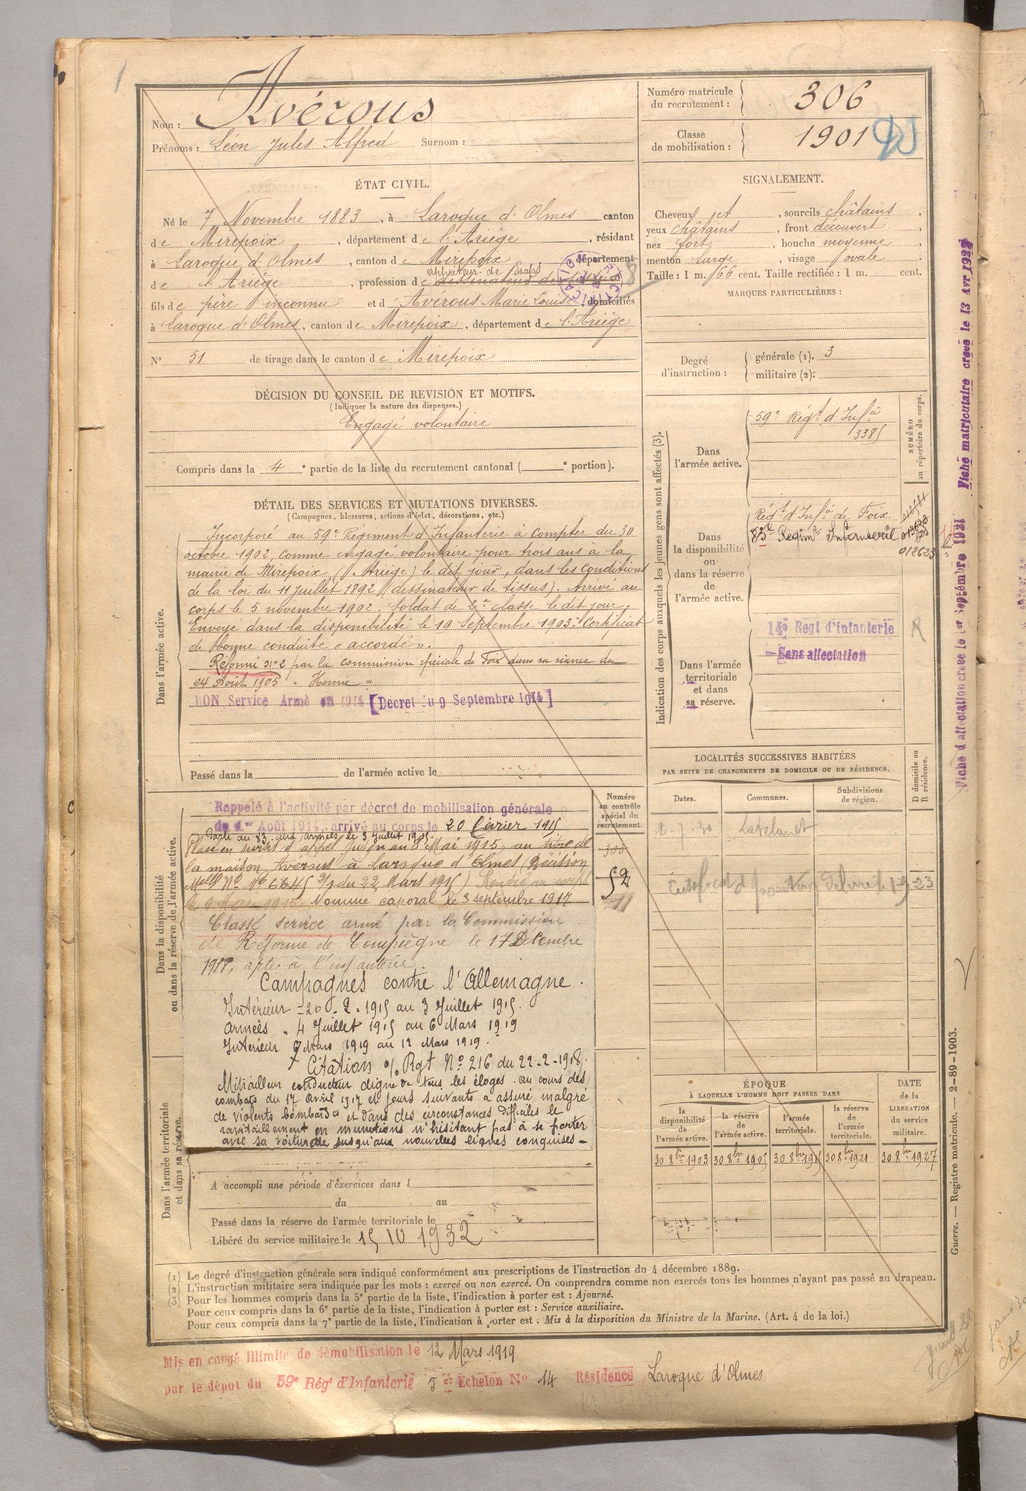 1
Nom : Avérous
Prénoms : Léon Jules Alfred Surnom :
Numéro matricule du recrutement : 306
Classe de mobilisation : 1901
ÉTAT CIVIL.
Né le 7 Novembre 1883, à Laroque d'Olmes canton
de Mirepoix, département de l'Ariège, résidant
à Laroque d'Olmes, canton de Mirepoix département
de l'Ariège, profession de
fils de père inconnu et d'Averous Marie Louise domiciliés
à Laroque d'Olmes, canton de Mirepoix, département de l'Ariège
N° 51 de tirage dans le canton de Mirepoix
SIGNALEMENT.
Cheveux et, sourcils châtains,
yeux châtains, front découvert
nez fort, bouche moyenne
menton large, visage ovale
Taille : 1 m. 66 cent. Taille rectifiée : 1 m. cent.
MARQUES PARTICULIÈRES :
Degré d'instruction : générale (1). 3
militaire (2):
DÉCISION DU CONSEIL DE REVISION ET MOTIFS.
(Indiquer la nature des dispenses.)
Engagé volontaire
Compris dans la 4e partie de la liste du recrutement cantonal ( e portion).
DÉTAIL DES SERVICES ET MUTATIONS DIVERSES.
(Campagnes, blessures, actions d'éclat, décorations, etc.)
Dans l'armée active.
Incorporé au 59e Régiment d'Infanterie à compter du 30
octobre 1902, comme engagé volontaire pour trois ans à la
mairie de Mirepoix (Ariège) le dit jour, dans les conditions
de la loi du 11 juillet 1892 (dessinateur de tissus). Arrivé au
corps le 5 novembre 1902. Soldat de 2e classe le dit jour.
Envoyé dans la disponibilité le 19 Septembre 1903. Certificat
de bonne conduite "accordé".
Réformé n° 2 par la commission spéciale de Foix dans sa séance du
24 Août 1905 "Hernie"
BON Service Armé en 1914 [Décret du 9 Septembre 1914]
Passé dans la de l'armée active le
Indication des corps auxquels les jeunes gens sont affectés (3).
NUMÉRO au répertoire du corps.
Dans l'armée active.
59e Régt d'Infie
3385
Dans la disponibilité ou dans la réserve de l'armée active.
Régt d'Infie de Foix
83e Régim Infanterie
012623
Dans l'armée territoriale et dans sa réserve.
14e Regt d'infanterie
Sans affectation
R
Fiche d'affectation créée le 1er Septembre 1921
Fiche matriculaire créée le 13 Avr 1928
Dans la disponibilité ou dans la réserve de l'armée active.
Rappelé à l'activité par décret de mobilisation générale
du 1er Août 1914, arrivé au corps le 20 février 1915
Placé en sursis d'appel jusqu'au 8 Mai 1915, au titre de
la maison Avérous à Laroque d'Olmes (Décision
du 22 Mars 1915) Rentré au corps
Nommé caporal le 3 septembre 1917
Classé service armé par la Commission
de Réforme de Compiègne le 17 Décembre
apte à l'infanterie.
Campagnes contre l'Allemagne.
Intérieur = 20-2-1915 au 3 Juillet 1915.
Armées - 4 Juillet 1915 au 6 Mars 1919
Intérieur 7 Mars 1919 au 12 Mars 1919.
Citation o/ Rgt N° 216 du 22-2-1918.
Mitrailleur conducteur digne de tous les éloges. au cours des
combats du 17 Avril 1917 et jours suivants a assuré malgré
de violents bombardts et dans des circonstances difficiles le
ravitaillement en munitions n'hésitant pas à se porter
avec sa voiturette jusqu'aux nouvelles lignes conquises-
Numéro au contrôle spécial du recrutement.
52
Dans l'armée territoriale et dans sa réserve.
A accompli une période d'exercices dans l
du au
Passé dans la réserve de l'armée territoriale le
Libéré du service militaire le 15 10 1932
LOCALITÉS SUCCESSIVES HABITÉES
PAR SUITE DE CHANGEMENTS DE DOMICILE OU DE RÉSIDENCE.
Dates. Communes. Subdivisions de région. D domicile ou R résidence.
2-7-30 Lavelanet
ÉPOQUE
À LAQUELLE L'HOMME DOIT PASSER DANS
la disponibilité de l'armée active. la réserve de l'armée active. l'armée territoriale. la réserve de l'armée territoriale. DATE de la LIBÉRATION du service militaire.
30 8bre 1903 30 8bre 1905 30 8bre 1915 30 8bre 1921 30 8bre 1927
Guerre. — Registre matricule. — 2-89-1903.
(1) Le degré d'instruction générale sera indiqué conformément aux prescriptions de l'instruction du 4 décembre 1889.
(2) L'instruction militaire sera indiquée par les mots : exercé ou non exercé. On comprendra comme non exercés tous les hommes n'ayant pas passé au drapeau.
(3) Pour les hommes compris dans la 5e partie de la liste, l'indication à porter est : Ajourné.
Pour ceux compris dans la 6e partie de la liste, l'indication à porter est : Service auxiliaire.
Pour ceux compris dans la 7e partie de la liste, l'indication à porter est : Mis à la disposition du Ministre de la Marine. (Art. 4 de la loi.)
Mis en congé illimité de démobilisation le 12 Mars 1919
par le dépôt du 59e Régt d'Infanterie 5 e Echelon N° 14 Résidence Laroque d'Olmes